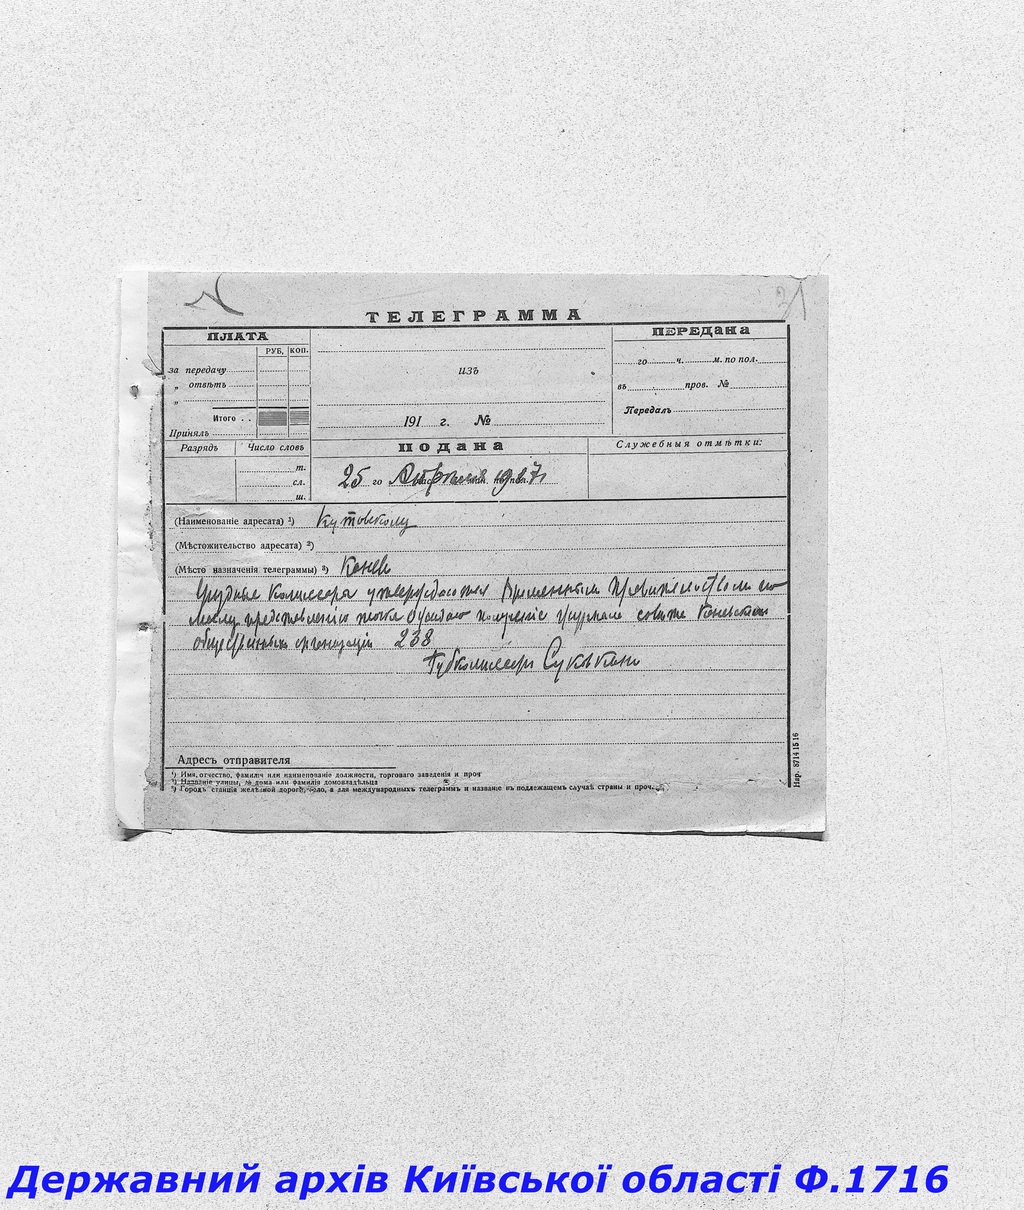 21
ТЕЛЕГРАММА
ПЛАТА
РУБ. КОП.
за передачу
„ отвѣтъ
„
Итого . .
Принялъ
изъ
191 г. №
ПЕРЕДАНА
го ч. м. по пол.
въ пров. №
Передалъ
Разрядъ Число словъ
т.
сл.
ш.
ПОДАНА
25 го Апреля 1917
Служебныя отмѣтки:
(Наименованіе адресата) ¹) Кутовскому
(Мѣстожительство адресата) ²)
(Мѣсто назначенія телеграммы) ³) Канев
Уездные Комиссары утверждаются Временным Правительством по
моему представлению точка Ожидаю журнала совета Каневских
общественных организацій 238
Губкомиссар Суковкин
Адресъ отправителя
¹) Имя, отчество, фамилія или наименованіе должности, торговаго заведенія и проч
²) Названіе улицы, № дома или фамилія домовладѣльца
³) Городъ, станція желѣзной дороги, село, а для международныхъ телеграммъ и названіе въ подлежащемъ случаѣ страны и проч.
Нар. 8714 15 16
Державний архів Київської області Ф.1716